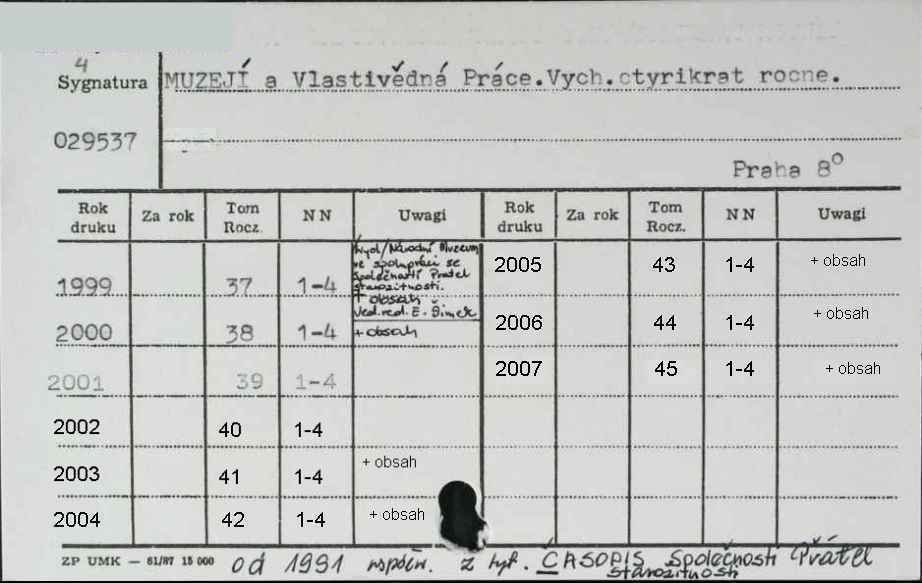 4
Sygnatura MUZEJÍ a Vlastivědná Práce.Vych.ctyrikrat rocne.
029537
Praha 8⁰
Rok druku Za rok Tom Rocz. NN Uwagi Rok druku Za rok Tom Rocz. NN Uwagi
Wyd/Národní Muzeum
ve spolupráci se
Společností Přatel
starozitnosti.
1999 37 1-4 + obsah
Ved.red. E. Šimek
2000 38 1-4 + obsah
2001 39 1-4
2002 40 1-4
2003 41 1-4 + obsah
2004 42 1-4 + obsah
2005 43 1-4 + obsah
2006 44 1-4 + obsah
2007 45 1-4 + obsah
ZP UMK — 61/87 15 000 od 1991 współn. z tyt. ČASOPIS Společnosti Přátel
starozitnosti